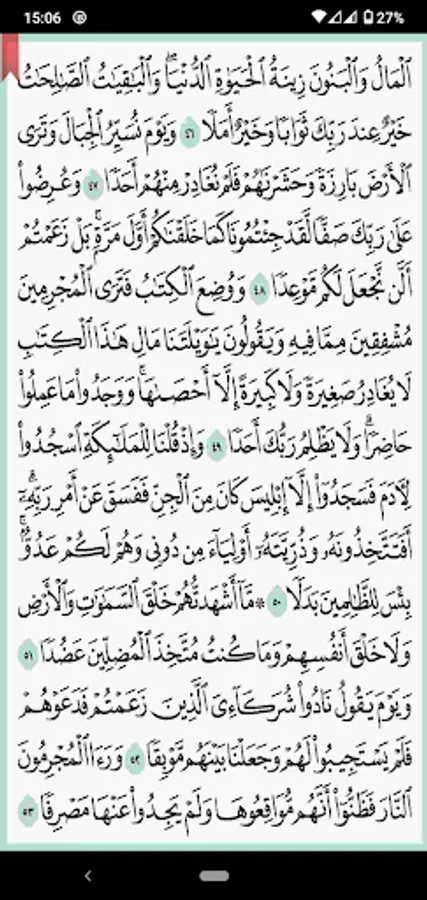 15:06 27%
الْمَالُ وَالْبَنُونَ زِينَةُ الْحَيَوٰةِ الدُّنْيَا ۖ وَالْبَٰقِيَٰتُ الصَّٰلِحَٰتُ
خَيْرٌ عِندَ رَبِّكَ ثَوَابًا وَخَيْرٌ أَمَلًا ٤٦ وَيَوْمَ نُسَيِّرُ الْجِبَالَ وَتَرَى
الْأَرْضَ بَارِزَةً وَحَشَرْنَٰهُمْ فَلَمْ نُغَادِرْ مِنْهُمْ أَحَدًا ٤٧ وَعُرِضُوا۟
عَلَىٰ رَبِّكَ صَفًّا لَّقَدْ جِئْتُمُونَا كَمَا خَلَقْنَٰكُمْ أَوَّلَ مَرَّةٍۭ ۚ بَلْ زَعَمْتُمْ
أَلَّن نَّجْعَلَ لَكُم مَّوْعِدًا ٤٨ وَوُضِعَ الْكِتَٰبُ فَتَرَى الْمُجْرِمِينَ
مُشْفِقِينَ مِمَّا فِيهِ وَيَقُولُونَ يَٰوَيْلَتَنَا مَالِ هَٰذَا الْكِتَٰبِ
لَا يُغَادِرُ صَغِيرَةً وَلَا كَبِيرَةً إِلَّآ أَحْصَىٰهَا ۚ وَوَجَدُوا۟ مَا عَمِلُوا۟
حَاضِرًا ۗ وَلَا يَظْلِمُ رَبُّكَ أَحَدًا ٤٩ وَإِذْ قُلْنَا لِلْمَلَٰٓئِكَةِ اسْجُدُوا۟
لِءَادَمَ فَسَجَدُوٓا۟ إِلَّآ إِبْلِيسَ كَانَ مِنَ الْجِنِّ فَفَسَقَ عَنْ أَمْرِ رَبِّهِۦٓ ۗ
أَفَتَتَّخِذُونَهُۥ وَذُرِّيَّتَهُۥٓ أَوْلِيَآءَ مِن دُونِى وَهُمْ لَكُمْ عَدُوٌّۢ ۚ
بِئْسَ لِلظَّٰلِمِينَ بَدَلًا ٥٠ ۞ مَّآ أَشْهَدتُّهُمْ خَلْقَ السَّمَٰوَٰتِ وَالْأَرْضِ
وَلَا خَلْقَ أَنفُسِهِمْ وَمَا كُنتُ مُتَّخِذَ الْمُضِلِّينَ عَضُدًا ٥١
وَيَوْمَ يَقُولُ نَادُوا۟ شُرَكَآءِىَ الَّذِينَ زَعَمْتُمْ فَدَعَوْهُمْ
فَلَمْ يَسْتَجِيبُوا۟ لَهُمْ وَجَعَلْنَا بَيْنَهُم مَّوْبِقًا ٥٢ وَرَءَا الْمُجْرِمُونَ
النَّارَ فَظَنُّوٓا۟ أَنَّهُم مُّوَاقِعُوهَا وَلَمْ يَجِدُوا۟ عَنْهَا مَصْرِفًا ٥٣